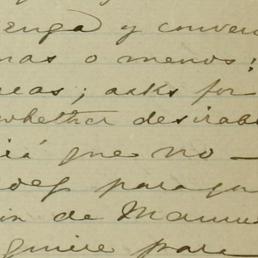 enga y conven
mas o menos:
eas; asks for
whether desirab
irá que no —
para
in de Manue
quiere para